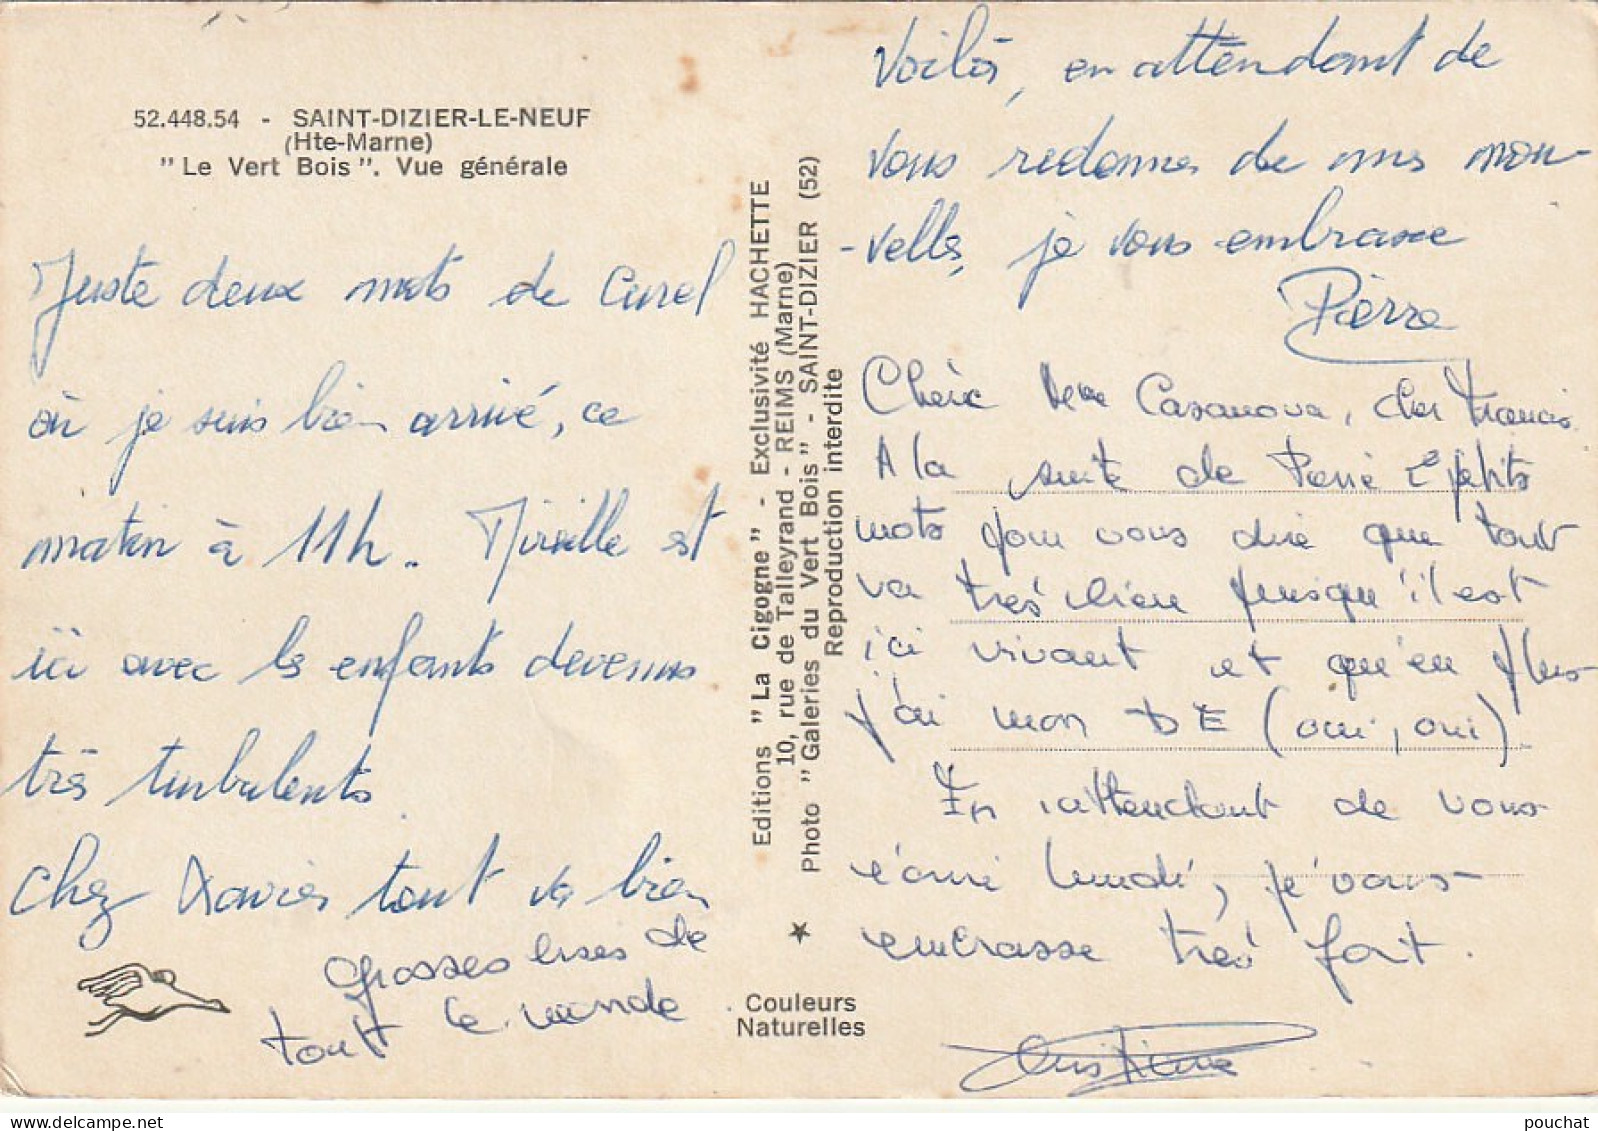 52.448.54 - SAINT-DIZIER-LE-NEUF
(Hte-Marne)
" Le Vert Bois ". Vue générale
Juste deux mots de Curel
où je suis bien arrivé, ce
matin à 11h. Mireille est
ici avec les enfants devenus
très turbulents.
Chez Xavier tout va bien
grosses bises de
tout le monde
Editions " La Cigogne " - Exclusivité HACHETTE
10, rue de Talleyrand - REIMS (Marne)
Photo " Galeries du Vert Bois " - SAINT-DIZIER (52)
Reproduction interdite
Couleurs
Naturelles
Voilà, en attendant de
vous redonner de mes nou-
-velles, je vous embrasse
Pierre
Chère Mme Casanova, cher Francis
A la suite de Pierre 2 petits
mots pour vous dire que tout
va très bien puisqu'il est
ici vivant et qu'en plus
j'ai mon DE (oui, oui)
En attendant de vous
lundi, je vous
embrasse très fort.
Christine
pouchat